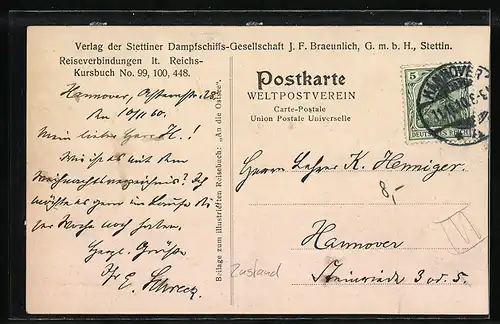 Verlag der Stettiner Dampfschiffs-Gesellschaft J. F. Braeunlich, G. m. b. H., Stettin.
Reiseverbindungen lt. Reichs-
Kursbuch No. 99, 100, 448.
Hannover, 28
Mein lieber Herr H.!
Wie ist es mit dem
Weihnachtsverzeichnis? Ich
möchte es gern im Laufe die-
ser Woche noch haben.
Herzl. Grüße
Ihr E. Schreck
Beilage zum illustrierten Reisebuch: „An die Ostsee“.
Postkarte
WELTPOSTVEREIN
Carte-Postale
Union Postale Universelle
5
DEUTSCHES REICH
HANNOVER
Herrn Lehrer K. Henniger.
8,-
Hannover
Steinriede 3 od. 5.
Zustand